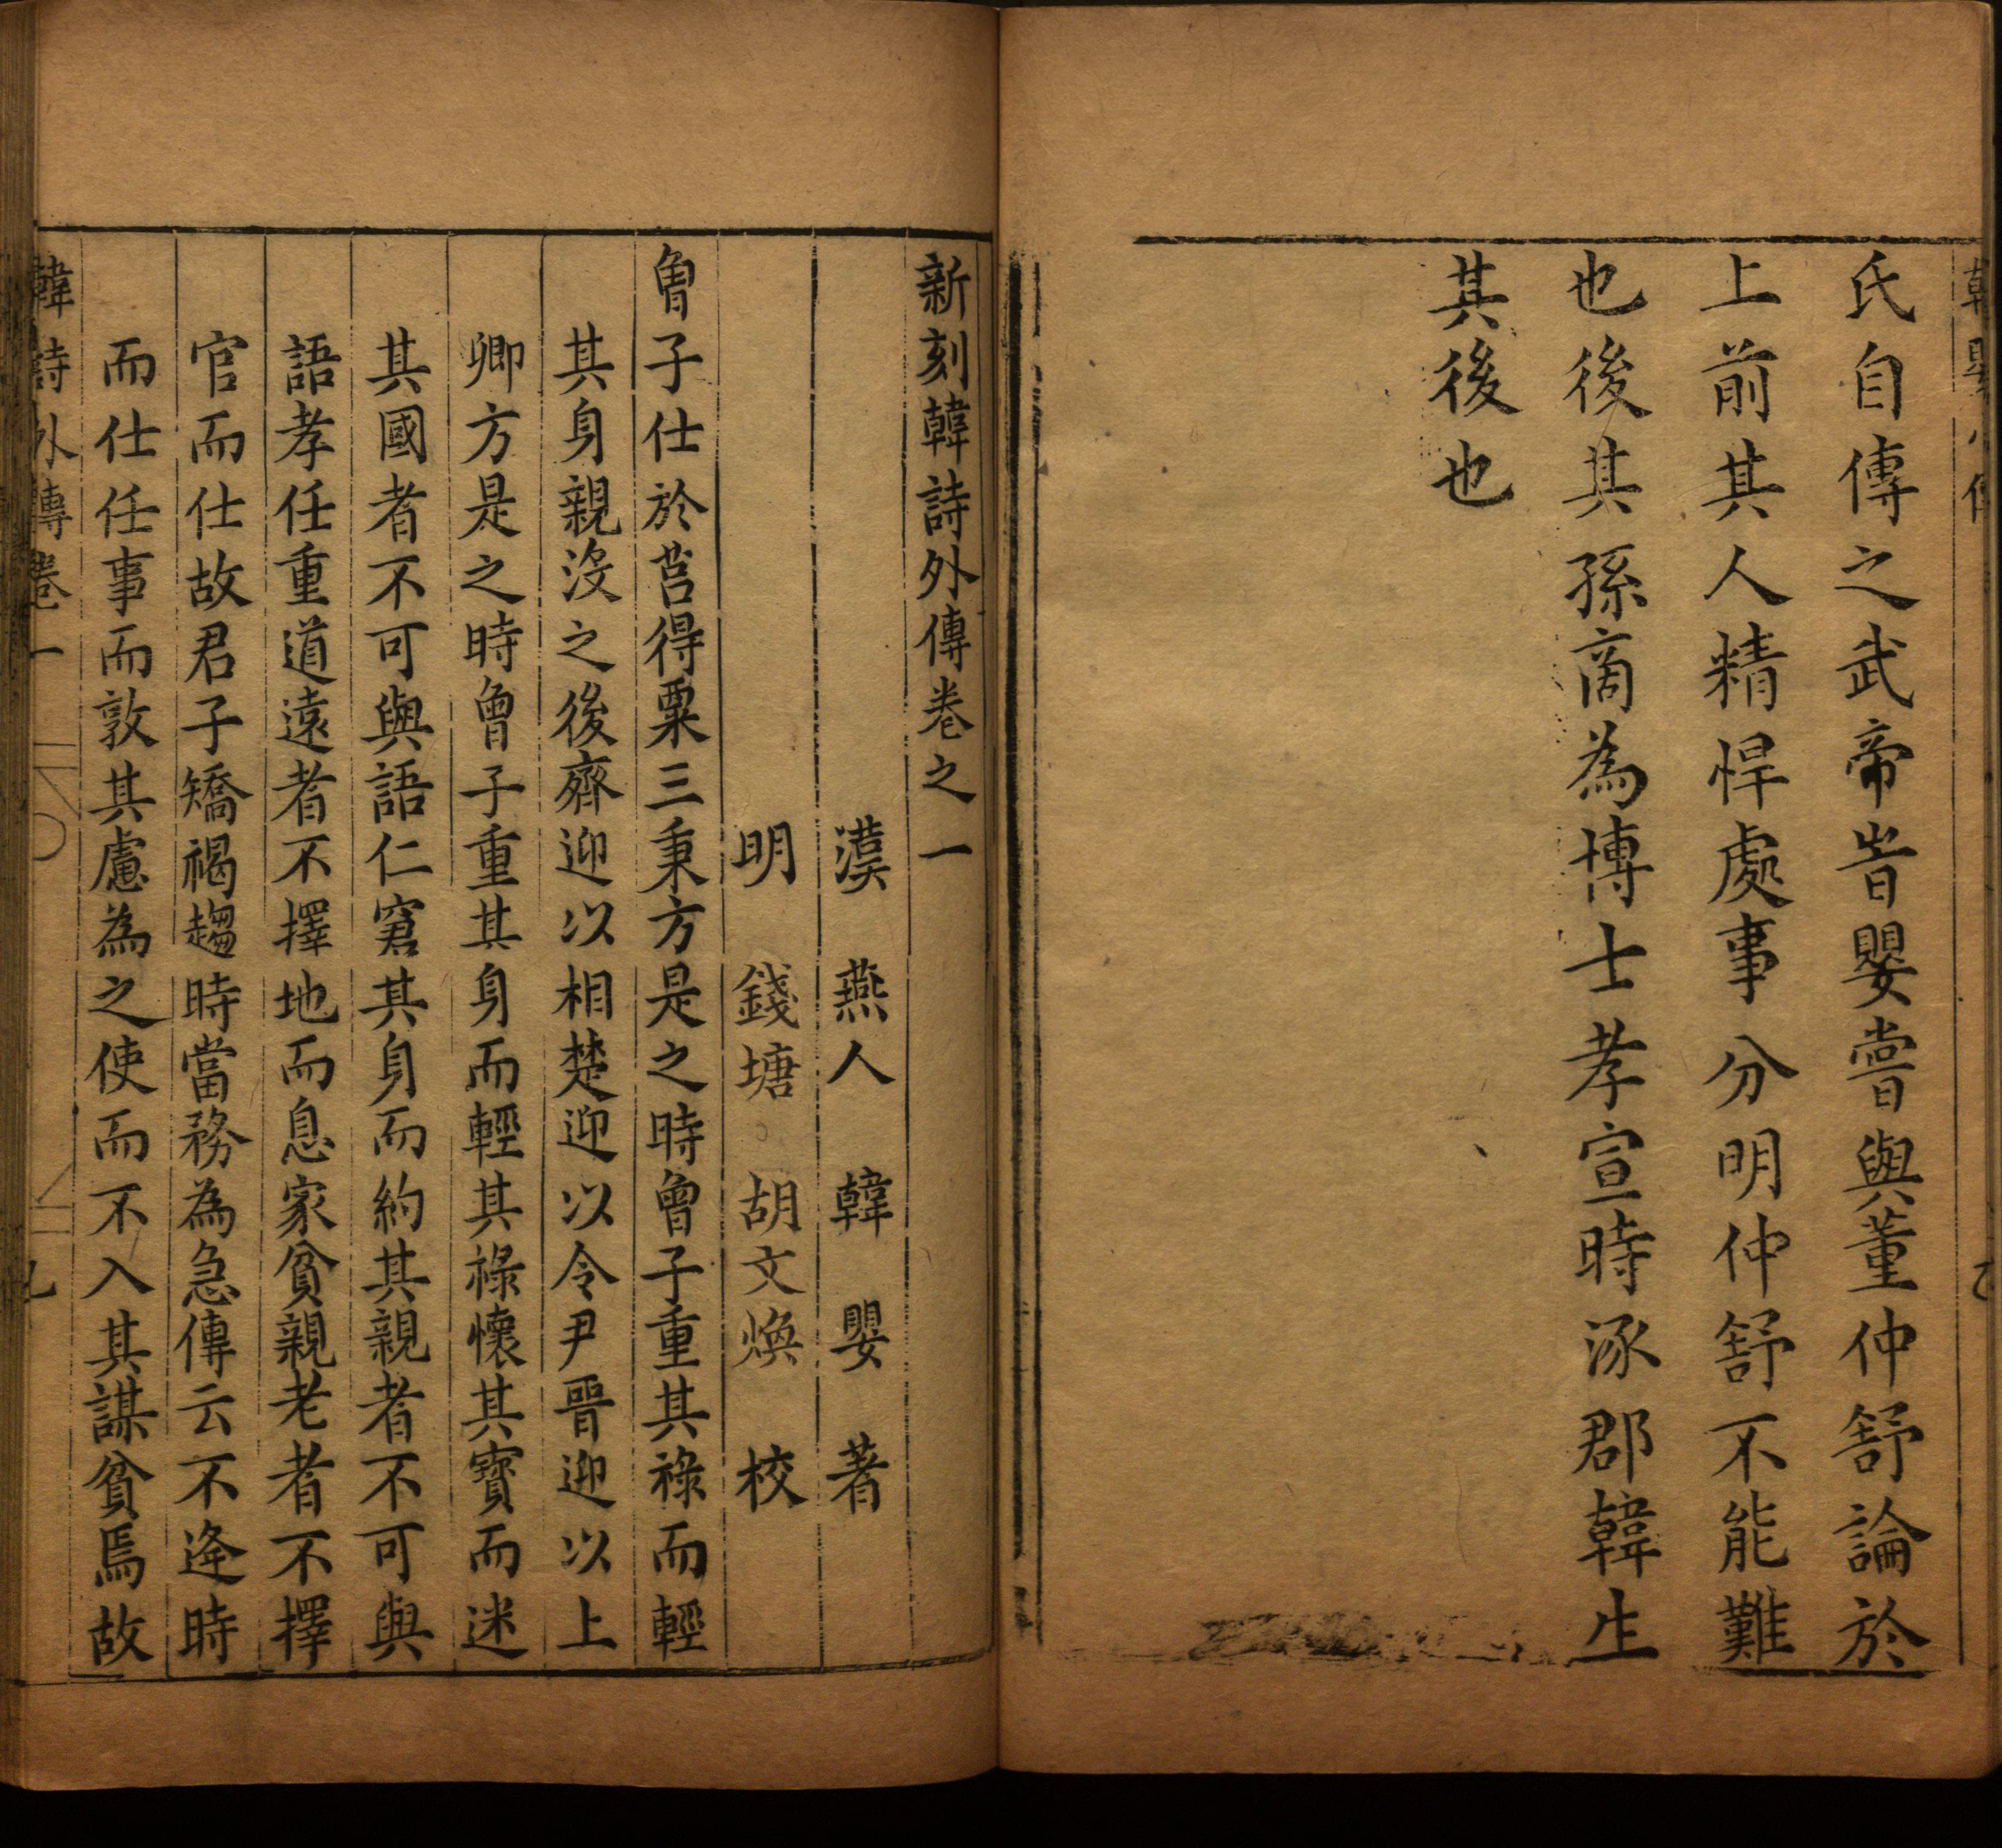 氏自傳之武帝旹嬰嘗與董仲舒論於
上前其人精悍處事分明仲舒不能難
也後其孫商為博士孝宣時涿郡韓生
其後也
新刻韓詩外傳卷之一
漢燕人韓嬰著
明錢塘胡文煥校
曾子仕於莒得粟三秉方是之時曾子重其祿而輕
其身親沒之後齊迎以相楚迎以令尹晉迎以上
卿方是之時曾子重其身而輕其祿懷其寳而迷
其國者不可與語仁窘其身而約其親者不可與
語孝任重道遠者不擇地而息家貧親老者不擇
官而仕故君子矯褐趨時當務為急傳云不逢時
而仕任事而敦其慮為之使而不入其謀貧焉故
韓詩外傳卷一